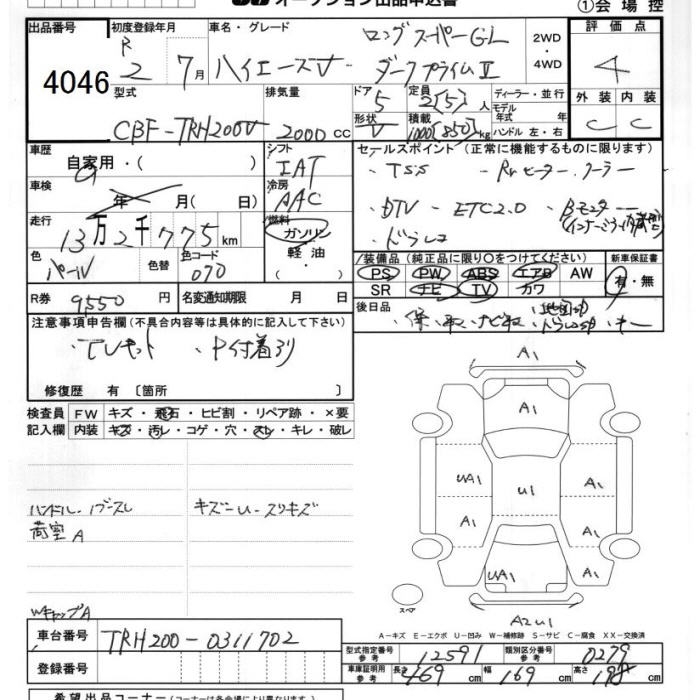 オークション出品申込書
①会場控
出品番号 4046
初度登録年月 R2 7月
車名・グレード ハイエースV ロングスーパーGL ダークプライムⅡ
2WD・4WD
評価点 4
外装 C 内装 C
型式 CBF-TRH200V
排気量 2000cc
ドア 5 形状 V
定員 2(5)人
積載 1000(850)kg
ディーラー・並行
モデル年式 年式
ハンドル 左・右
車歴 自家用・( )
車検 年 月( 日)
走行 13万2千775km
色 パールⅣ 色替 色コード 070
シフト IAT
冷房 AAC
燃料 ガソリン 軽油
セールスポイント(正常に機能するものに限ります)
・TSS ・Rrヒーター・クーラー
・DTV ・ETC2.0 ・Bモニター
(インナーミラー内蔵)
・ドラレコ
装備品(純正品に限り○をつけてください)
PS PW ABS エアB AW
SR ナビ TV カワ
新車保証書 有・無
R券 9550円
名変通知期限 月 日
後日品 ・保・取・ナビ取
・キー
注意事項申告欄(不具合内容等は具体的に記入して下さい)
・TVキット ・P付着多少
修復歴 有〔箇所 〕
検査員記入欄
FW キズ・飛石・ヒビ割・リペア跡・×要
内装 キズ・汚レ・コゲ・穴・スレ・キレ・破レ
ハンドル・ノブスレ
荷室A
キズーU・スリキズ
WキャップA
A1
A1
UA1
A1
U1
A1
A1
UA1
A1
A2U1
スペア
A-キズ E-エクボ U-凹み W-補修跡 S-サビ C-腐食 XX-交換済
車台番号 TRH200-0311702
登録番号
型式指定番号 参考 12591
類別区分番号 参考 0279
車庫証明用 参考 長さ 469 幅 169 高さ
希望出品コーナー(コーナーは各会場により異なります)